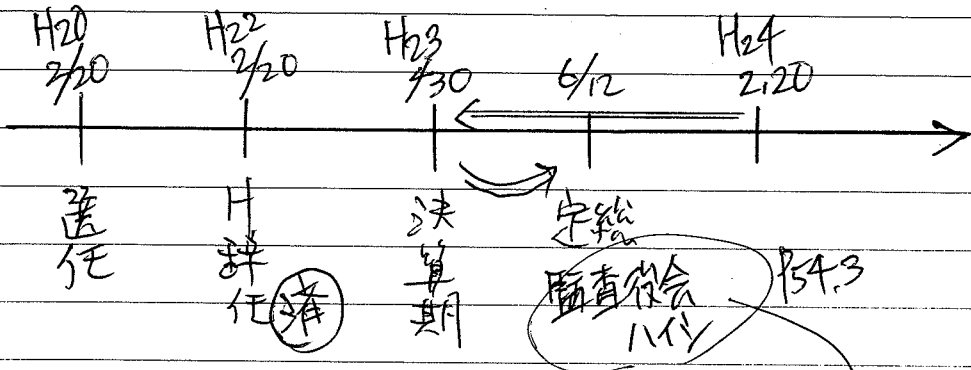 H20
2/20
H22
2/20
H23
4/30
6/12
H24
2.20
選任
H
辞任済
決算期
定総
監査役会
ハイシ
P54.3